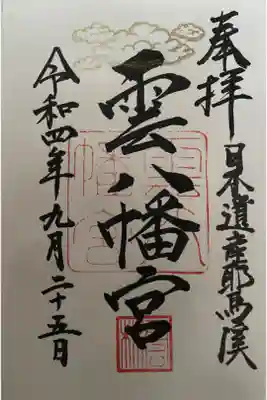 奉拝
日本遺産耶馬渓
雲八幡宮
令和四年九月二十五日